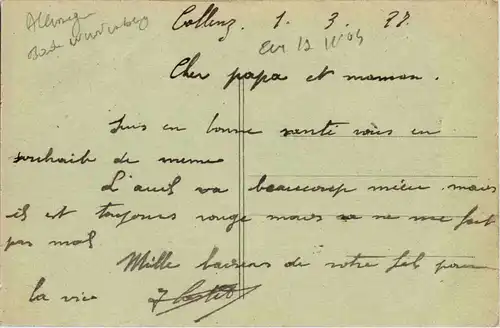 Allemagne
Bade Wurtemberg
Coblenz, 1. 3. 22.
Cher papa et maman.
Suis en bonne santé vous en
souhaite de meme
L'oeuil va beaucoup mieu mais
il est toujours rouge mais ça ne me fait
pas mal
Mille baisers de votre fils pour
la vie